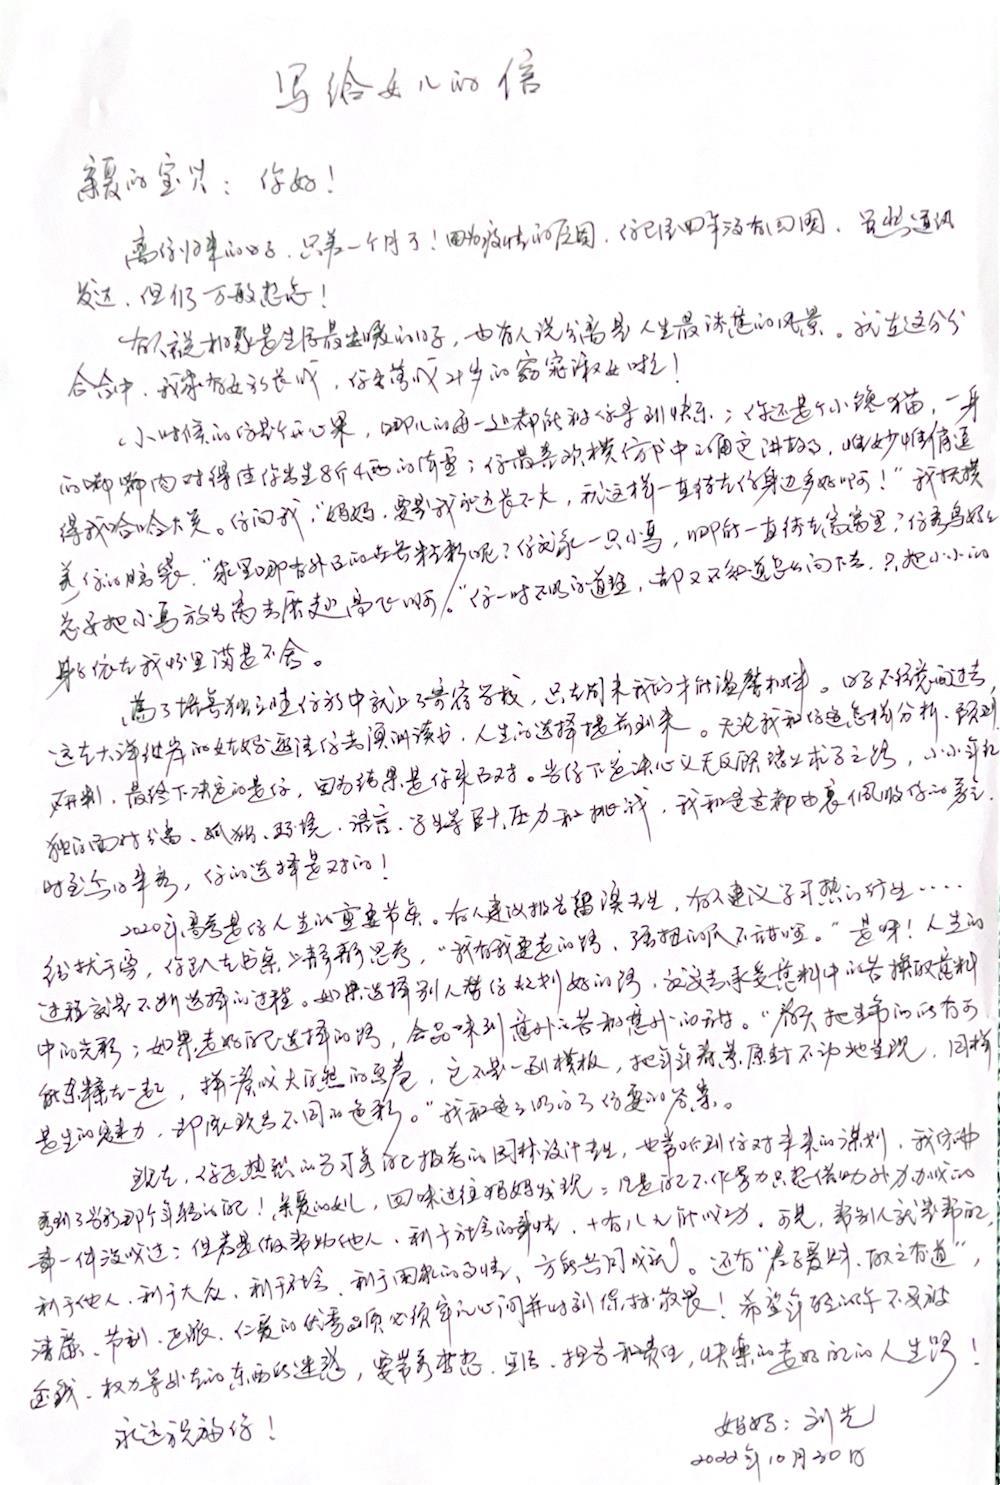 写给女儿的信
亲爱的宝贝：你好！
离你归来的日子，只差一个月了！因为疫情的原因，你已经四年没有回国，虽然通讯
发达，但仍万般想念！
有人说相聚是生活最温暖的日子，也有人说分离是人生最浪漫的风景。就在这分分
合合中，我家有女初长成，你出落成21岁的窈窕淑女啦！
小时候的你是个开心果，哪儿的每一处都能被你寻到快乐；你还是个小馋猫，一身
的嘟嘟肉对得住你出生8斤4两的体重；你最喜欢模仿书中的角色讲故事，惟妙惟俏逗
得我哈哈大笑。你问我，“妈妈，要是我永远长不大，就这样一直待在你身边多好啊！”我抚摸
着你的脑袋，“家里哪有外面的世界精彩呢？你就像一只小鸟，哪能一直待在窝窝里？你看鸟妈妈
总要把小鸟放出窝去展翅高飞啊。”你一时不明白道理，却又不知道怎么问下去，只把小小的
身子依在我怀里满是不舍。
为了培养独立性你初中就上了寄宿学校，只有周末我们才能温馨相伴。日子不经意间过去，
远在大洋彼岸的姑妈邀请你去澳洲读书，人生的选择提前到来。无论我和你爸怎样分析、预判、
研判，最终下决定的是你，因为结果是你来面对。当你下定决心义无反顾踏上求学之路，小小年纪
独自面对分离、孤独、环境、语言、学业等巨大压力和挑战，我和爸爸都由衷佩服你的勇气，
时至今日来看，你的选择是对的！
2020年高考是你人生的重要节点。有人建议报告留澳专业，有人建议学可热的行业……
纷扰于旁，你趴在书案上静静思考，“我有我要走的路，强扭的瓜不甜哇。”是呀！人生的
过程就是不断选择的过程。如果选择别人替你规划好的路，应该去承受意料中的苦换取意料
中的光彩；如果走好自己选择的路，会品味到意外的苦和意外的甜。“春天把生命的所有可
能杂糅在一起，拼凑成大自然的画卷，它不是一副模板，把年年春景原封不动地呈现，同样
是生的魅力，却展现出不同的色彩。”我和爸爸明白了你要的答案。
现在，你还热烈的学习着自己报考的园林设计专业，也常听到你对未来的谋划，我仿佛
看到了当初那个年轻的自己！亲爱的女儿，回味过往妈妈发现：凡是自己不作努力只想借助外力办成的
事一件没成过；但若是做帮助他人、利于社会的事情，十有八九能成功。可见，帮别人就是帮自己，
利于他人、利于大众、利于社会、利于国家的事情，方能共同成就。还有“君子爱财，取之有道”，
清廉、节制、正派、仁爱的优秀品质必须牢记心间并时刻保持敬畏！希望年轻的你不要被
金钱、权力等外在的东西所迷惑，要带着梦想、坚信、担当和责任，快乐的走好自己的人生路！
永远祝福你！
妈妈：刘先
2022年10月30日